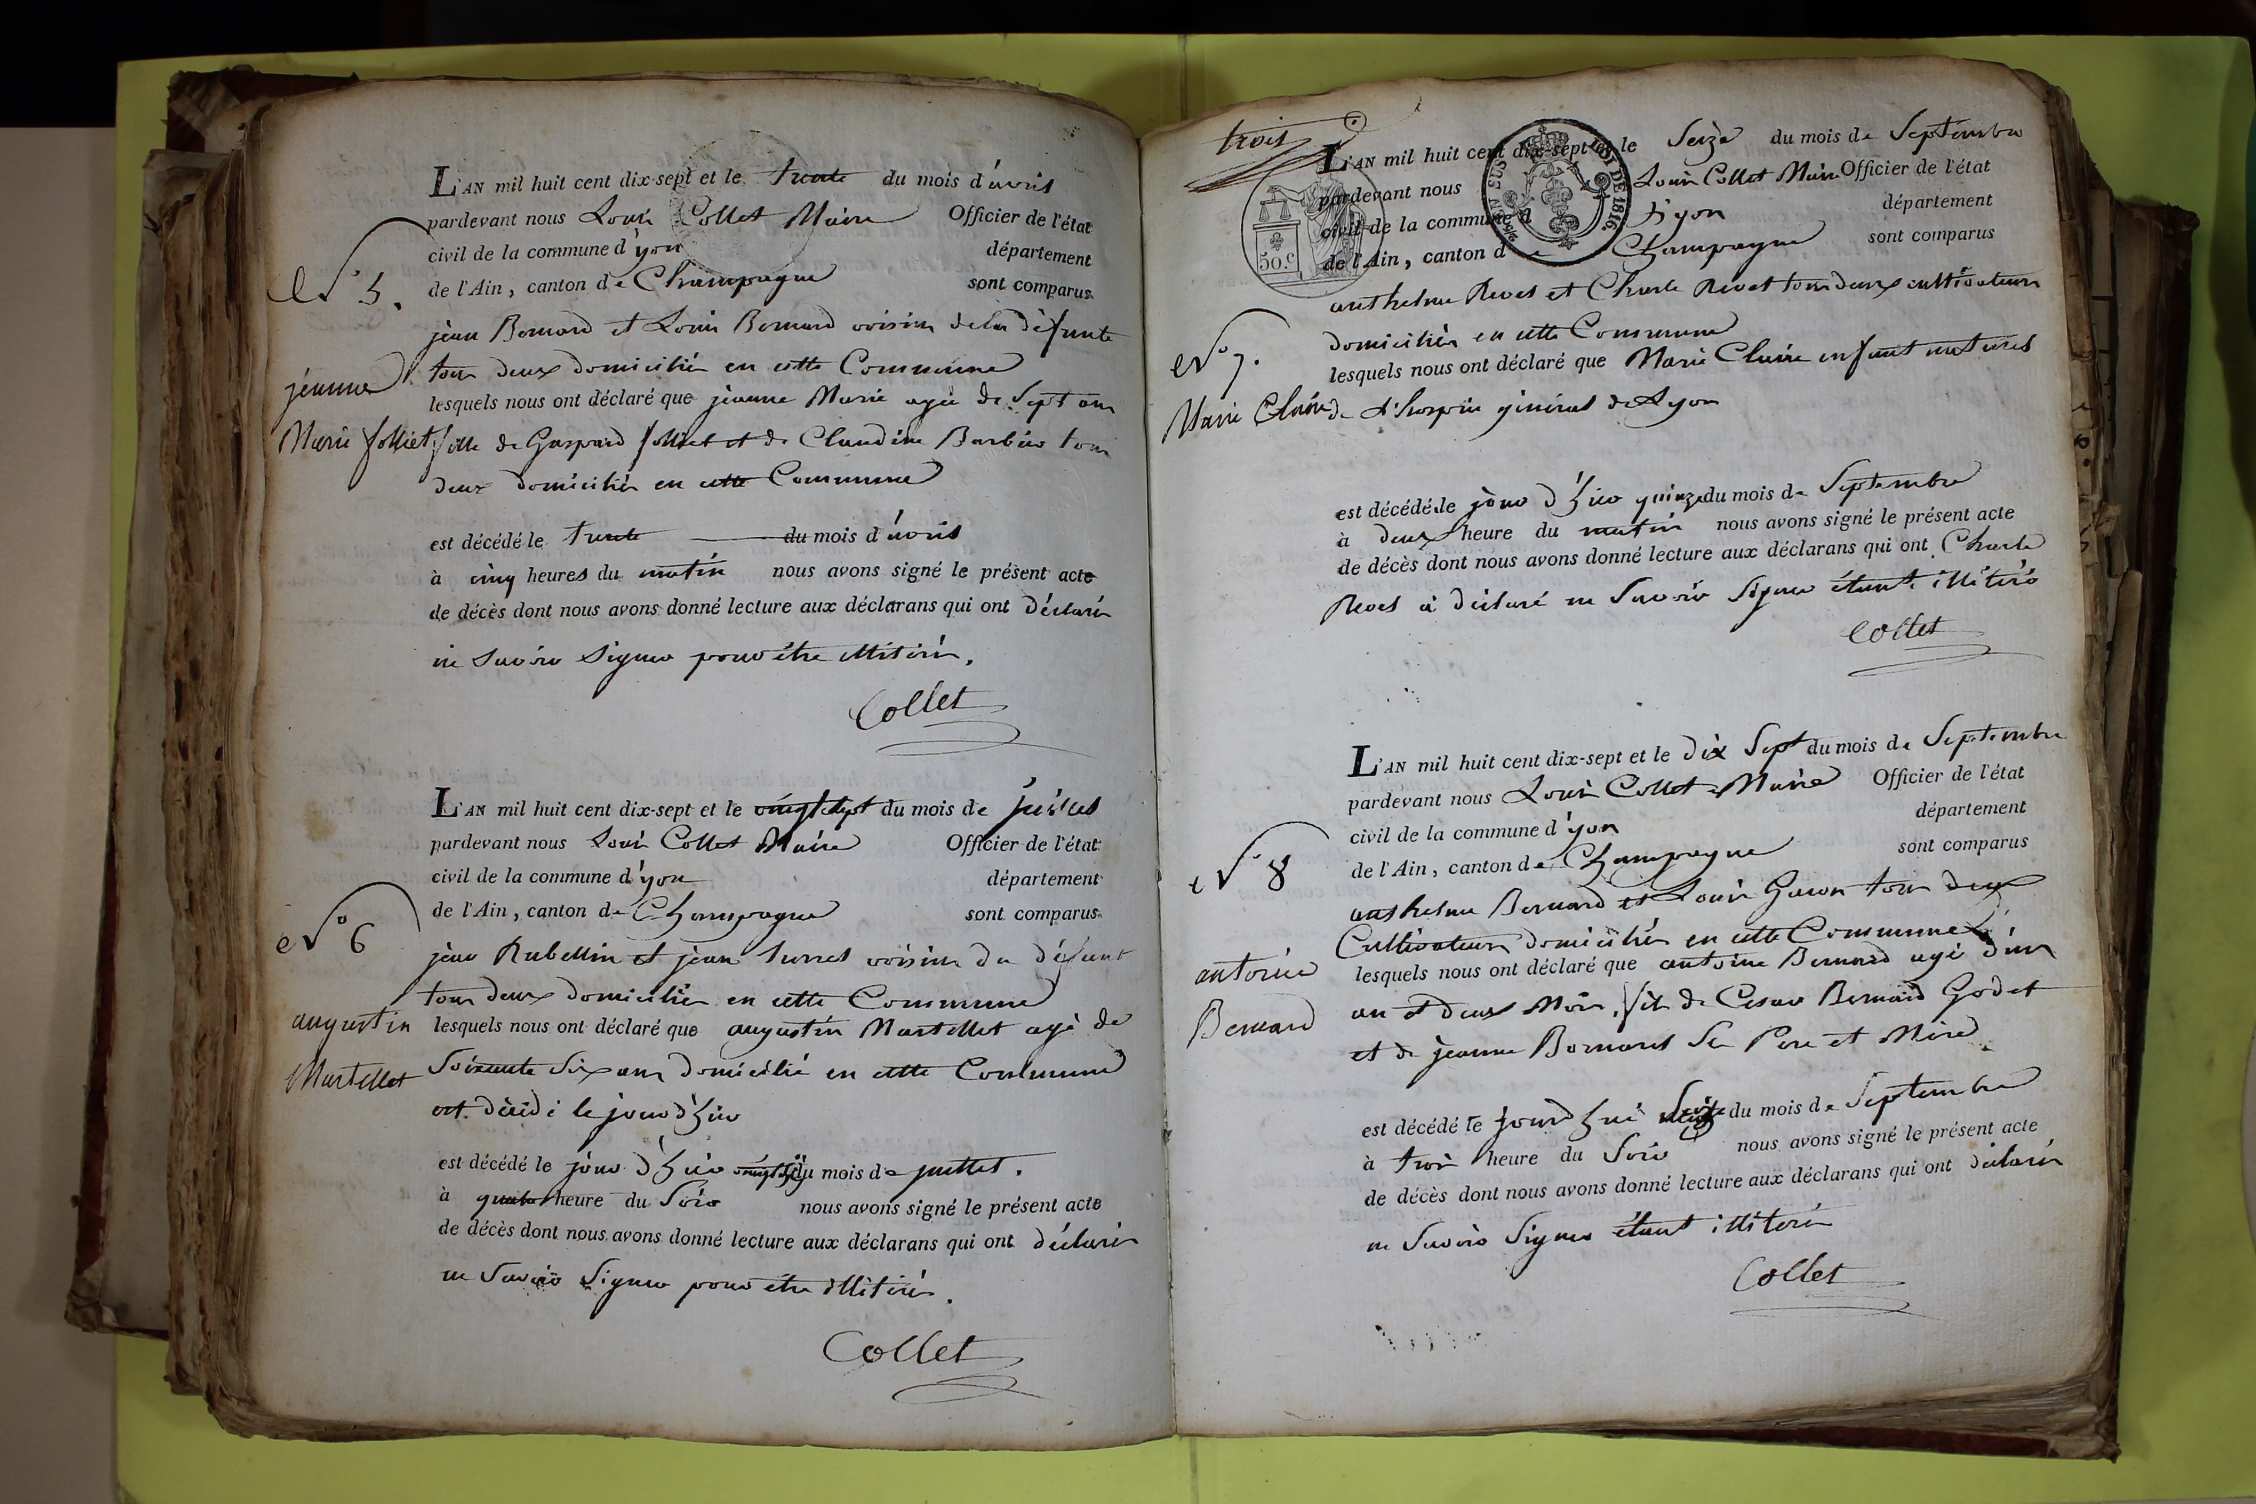 L'AN mil huit cent dix-sept et le trente du mois d'avril
pardevant nous Louis Collet Maire Officier de l'état
civil de la commune d'yon département
de l'Ain, canton de Champagne sont comparus
N° 5.
jean Bernard et Louis Bernard voisin de la défunte
tous deux domiciliés en cette Commune
jeanne Marie folliet
lesquels nous ont déclaré que jeanne Marie agée de Sept ans
fille de Gaspard folliet et de Claudine Barbier tous
deux domiciliés en cette Commune
est décédé le trente du mois d'avril
à cinq heures du matin nous avons signé le présent acte
de décès dont nous avons donné lecture aux déclarans qui ont déclarés
ne Savoir Signer pour être illitérés.
Collet
L'AN mil huit cent dix-sept et le vingt sept du mois de juillet
pardevant nous Louis Collet Maire Officier de l'état
civil de la commune d'yon département
de l'Ain, canton de Champagne sont comparus
N° 6
jean Rubellin et jean voisins du défunt
tous deux domiciliés en cette Commune
augustin Martellet
lesquels nous ont déclaré que augustin Martellet agé de
Soixante Six ans domicilié en cette Commune
est décédé le jour d'hier
est décédé le jour d'hier du mois de juillet.
à quatre heure du Soir nous avons signé le présent acte
de décès dont nous avons donné lecture aux déclarans qui ont déclarés
ne Savoir Signer pour être illitérés.
Collet
trois
50.c
LOI DE 1816.
L'AN mil huit cent dix-sept et le Seize du mois de Septembre
pardevant nous Louis Collet Maire Officier de l'état
civil de la commune d'yon département
de l'Ain, canton de Champagne sont comparus
anthelme Revet et Charle Revet tous deux cultivateurs
N° 7.
domiciliés en cette Commune
lesquels nous ont déclaré que Marie Claire enfant naturel
Marie Claire
de l'hospice général de Lyon
est décédé le jour d'hier quinze du mois de Septembre
à deux heure du matin nous avons signé le présent acte
de décès dont nous avons donné lecture aux déclarans qui ont Charle
Revet a déclaré ne Savoir Signer étant illitéré
Collet
L'AN mil huit cent dix-sept et le dix Sept du mois de Septembre
pardevant nous Louis Collet Maire Officier de l'état
civil de la commune d'yon département
de l'Ain, canton de Champagne sont comparus
N° 8
anthelme Bernard et Louis tous deux
Cultivateurs domiciliés en cette Commune
antoine Bernard
lesquels nous ont déclaré que antoine Bernard agé d'un
an et deux Mois, fils de Cesar Bernard Godet
et de jeanne Bernard Se Pere et Mere
est décédé le jourd'hui Seize du mois de Septembre
à trois heure du Soir nous avons signé le présent acte
de décès dont nous avons donné lecture aux déclarans qui ont déclarés
ne Savoir Signer étant illitérés
Collet